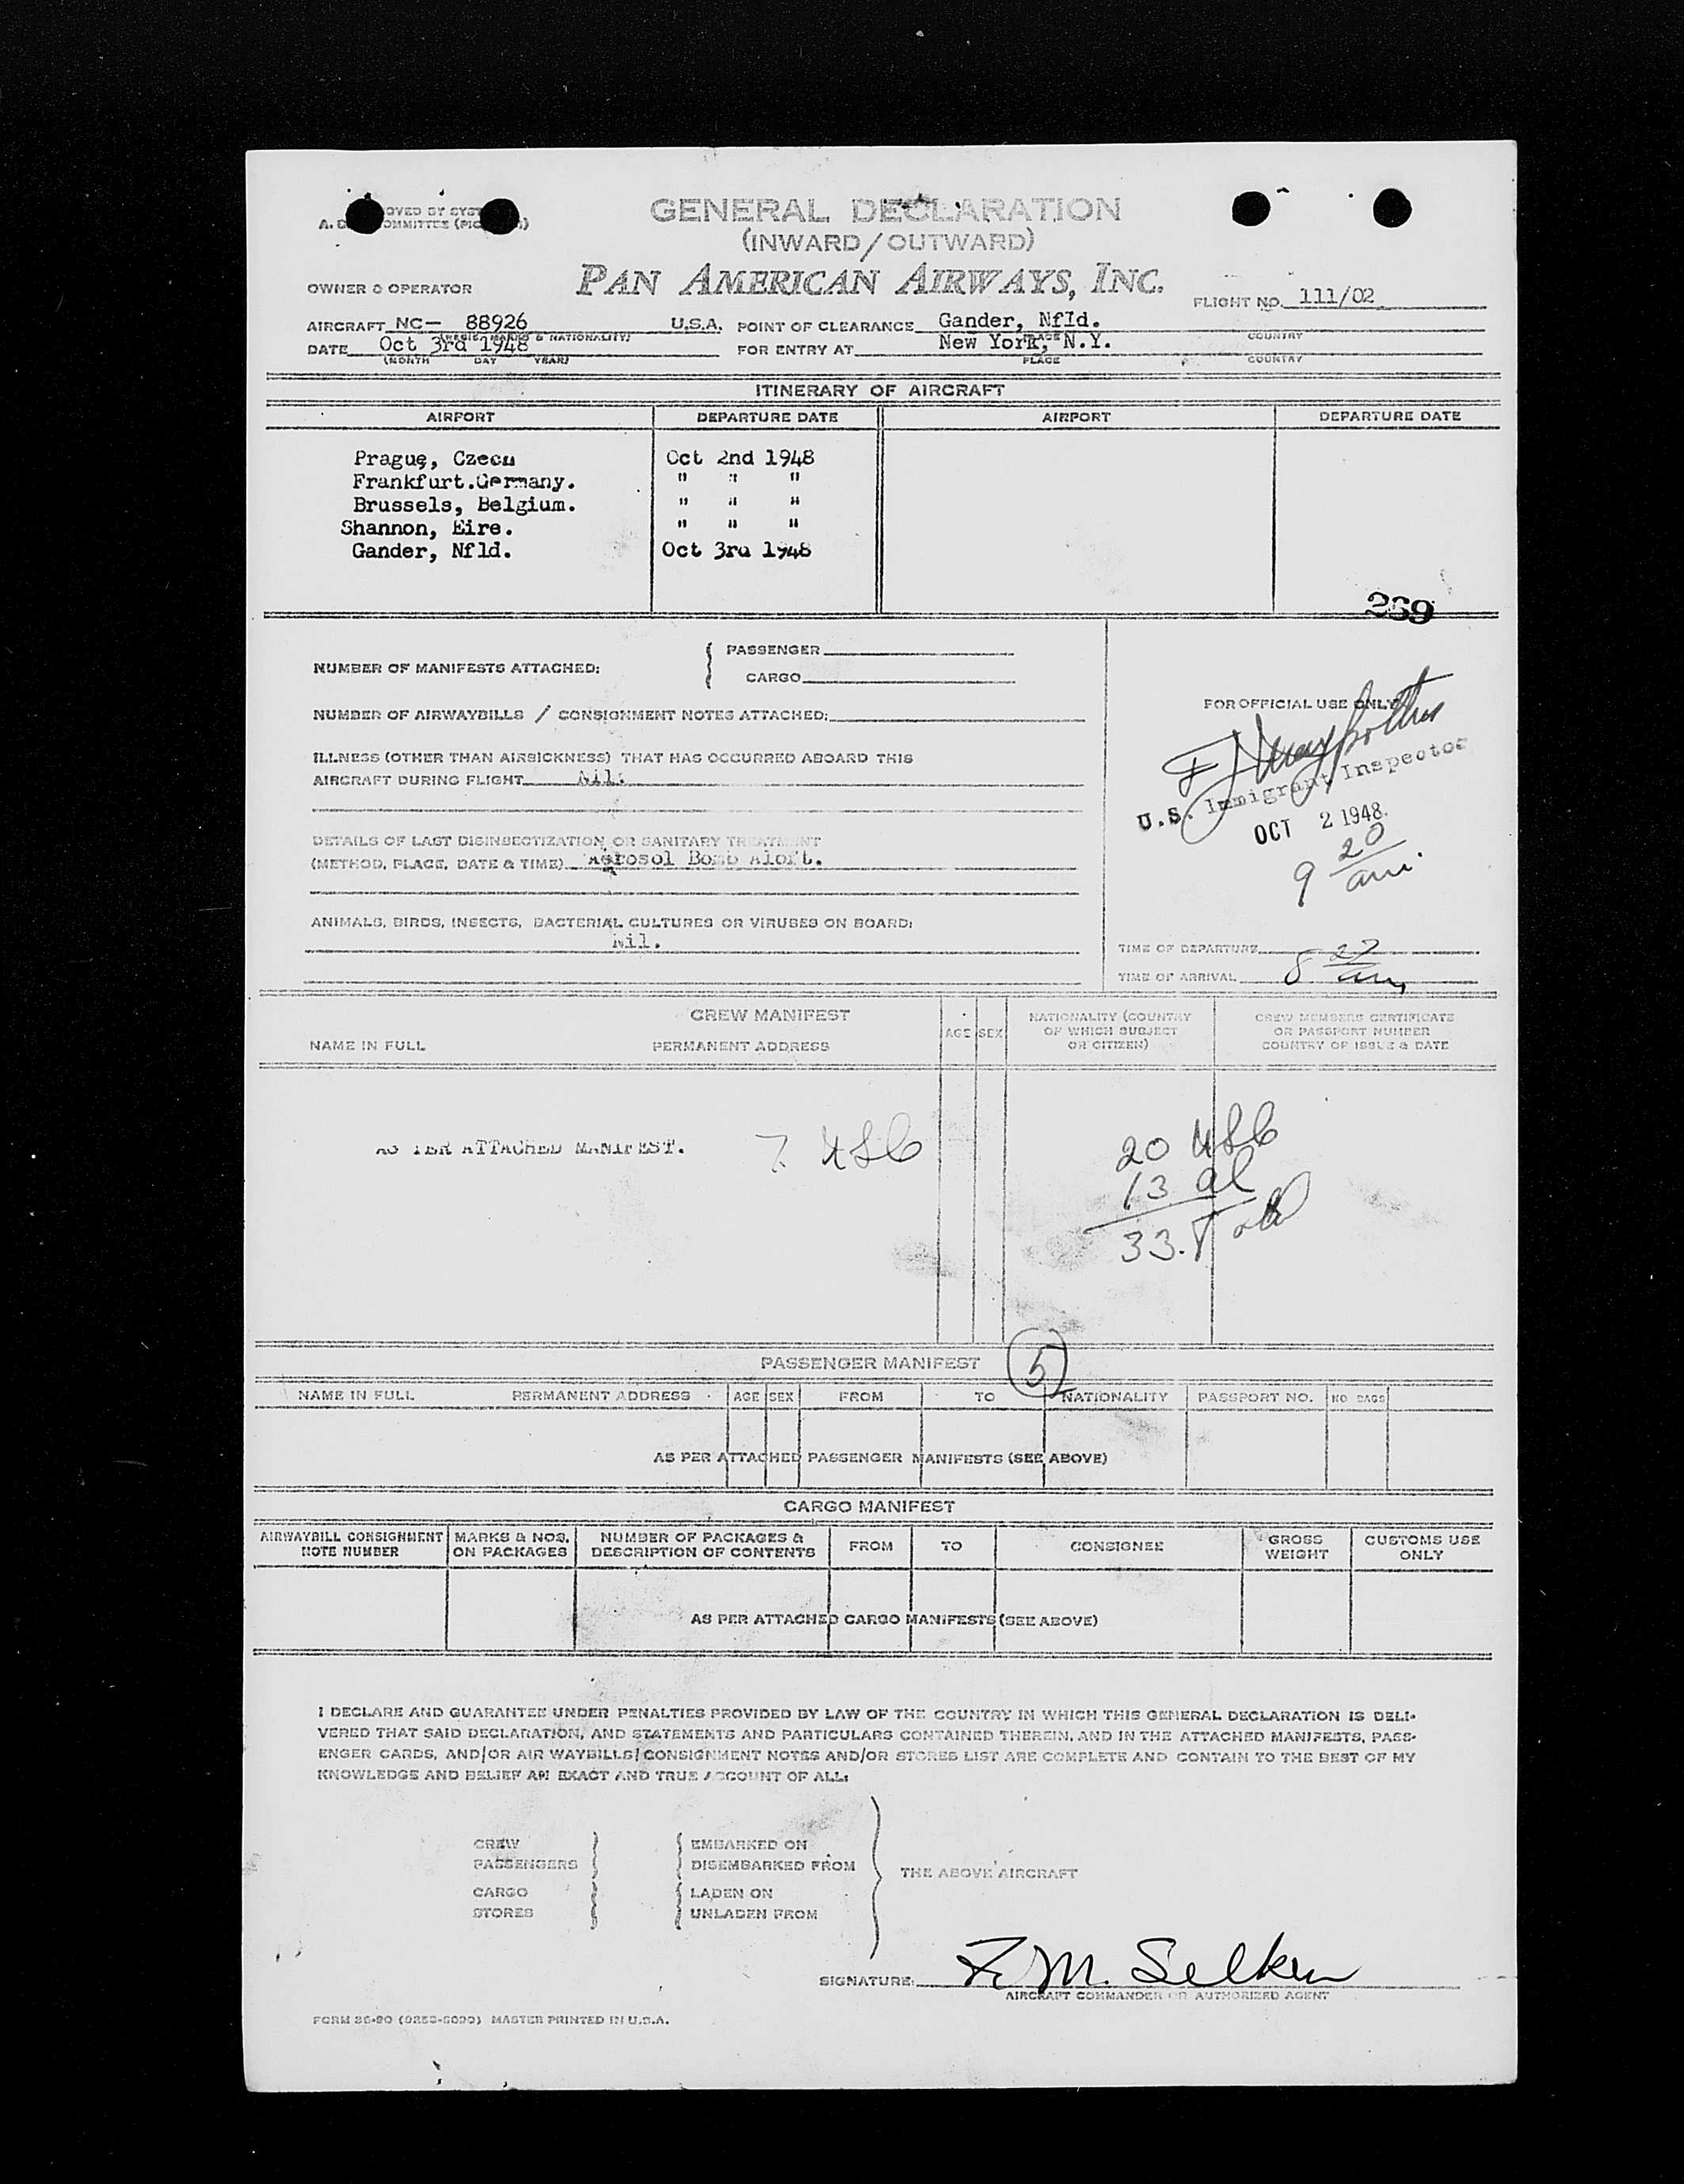 GENERAL DECLARATION
(INWARD/OUTWARD)
PAN AMERICAN AIRWAYS, INC.
OWNER & OPERATOR
FLIGHT NO. 111/02
AIRCRAFT NC- 88926 U.S.A. POINT OF CLEARANCE Gander, Nfld.
(REGIS. MARKS & NATIONALITY) PLACE COUNTRY
DATE Oct 3rd 1948 FOR ENTRY AT New York, N.Y.
(MONTH DAY YEAR) PLACE COUNTRY
ITINERARY OF AIRCRAFT
AIRPORT DEPARTURE DATE AIRPORT DEPARTURE DATE
Prague, Czech Oct 2nd 1948
Frankfurt.Germany. " " "
Brussels, Belgium. " " "
Shannon, Eire. " " "
Gander, Nfld. Oct 3rd 1948
269
NUMBER OF MANIFESTS ATTACHED: PASSENGER
CARGO
NUMBER OF AIRWAYBILLS / CONSIGNMENT NOTES ATTACHED:
ILLNESS (OTHER THAN AIRSICKNESS) THAT HAS OCCURRED ABOARD THIS
AIRCRAFT DURING FLIGHT Nil.
DETAILS OF LAST DISINSECTIZATION OR SANITARY TREATMENT
(METHOD, PLACE, DATE & TIME) Aerosol Bomb Aloft.
ANIMALS, BIRDS, INSECTS, BACTERIAL CULTURES OR VIRUSES ON BOARD:
Nil.
FOR OFFICIAL USE ONLY
U.S. Immigrant Inspector
OCT 2 1948
9 20 am.
TIME OF DEPARTURE
TIME OF ARRIVAL 8 27 am
CREW MANIFEST
NAME IN FULL PERMANENT ADDRESS AGE SEX NATIONALITY (COUNTRY OF WHICH SUBJECT OR CITIZEN) CREW MEMBERS CERTIFICATE OR PASSPORT NUMBER COUNTRY OF ISSUE & DATE
AS PER ATTACHED MANIFEST. 7 USC
20 USC
13 al
33. Total
PASSENGER MANIFEST 5
NAME IN FULL PERMANENT ADDRESS AGE SEX FROM TO NATIONALITY PASSPORT NO. NO BAGS
AS PER ATTACHED PASSENGER MANIFESTS (SEE ABOVE)
CARGO MANIFEST
AIRWAYBILL CONSIGNMENT NOTE NUMBER MARKS & NOS. ON PACKAGES NUMBER OF PACKAGES & DESCRIPTION OF CONTENTS FROM TO CONSIGNEE GROSS WEIGHT CUSTOMS USE ONLY
AS PER ATTACHED CARGO MANIFESTS (SEE ABOVE)
I DECLARE AND GUARANTEE UNDER PENALTIES PROVIDED BY LAW OF THE COUNTRY IN WHICH THIS GENERAL DECLARATION IS DELI-
VERED THAT SAID DECLARATION, AND STATEMENTS AND PARTICULARS CONTAINED THEREIN, AND IN THE ATTACHED MANIFESTS, PASS-
ENGER CARDS, AND/OR AIR WAYBILLS/CONSIGNMENT NOTES AND/OR STORES LIST ARE COMPLETE AND CONTAIN TO THE BEST OF MY
KNOWLEDGE AND BELIEF AN EXACT AND TRUE ACCOUNT OF ALL:
CREW EMBARKED ON
PASSENGERS DISEMBARKED FROM
THE ABOVE AIRCRAFT
CARGO LADEN ON
STORES UNLADEN FROM
SIGNATURE: F. M. Selken
AIRCRAFT COMMANDER OR AUTHORIZED AGENT
MASTER PRINTED IN U.S.A.